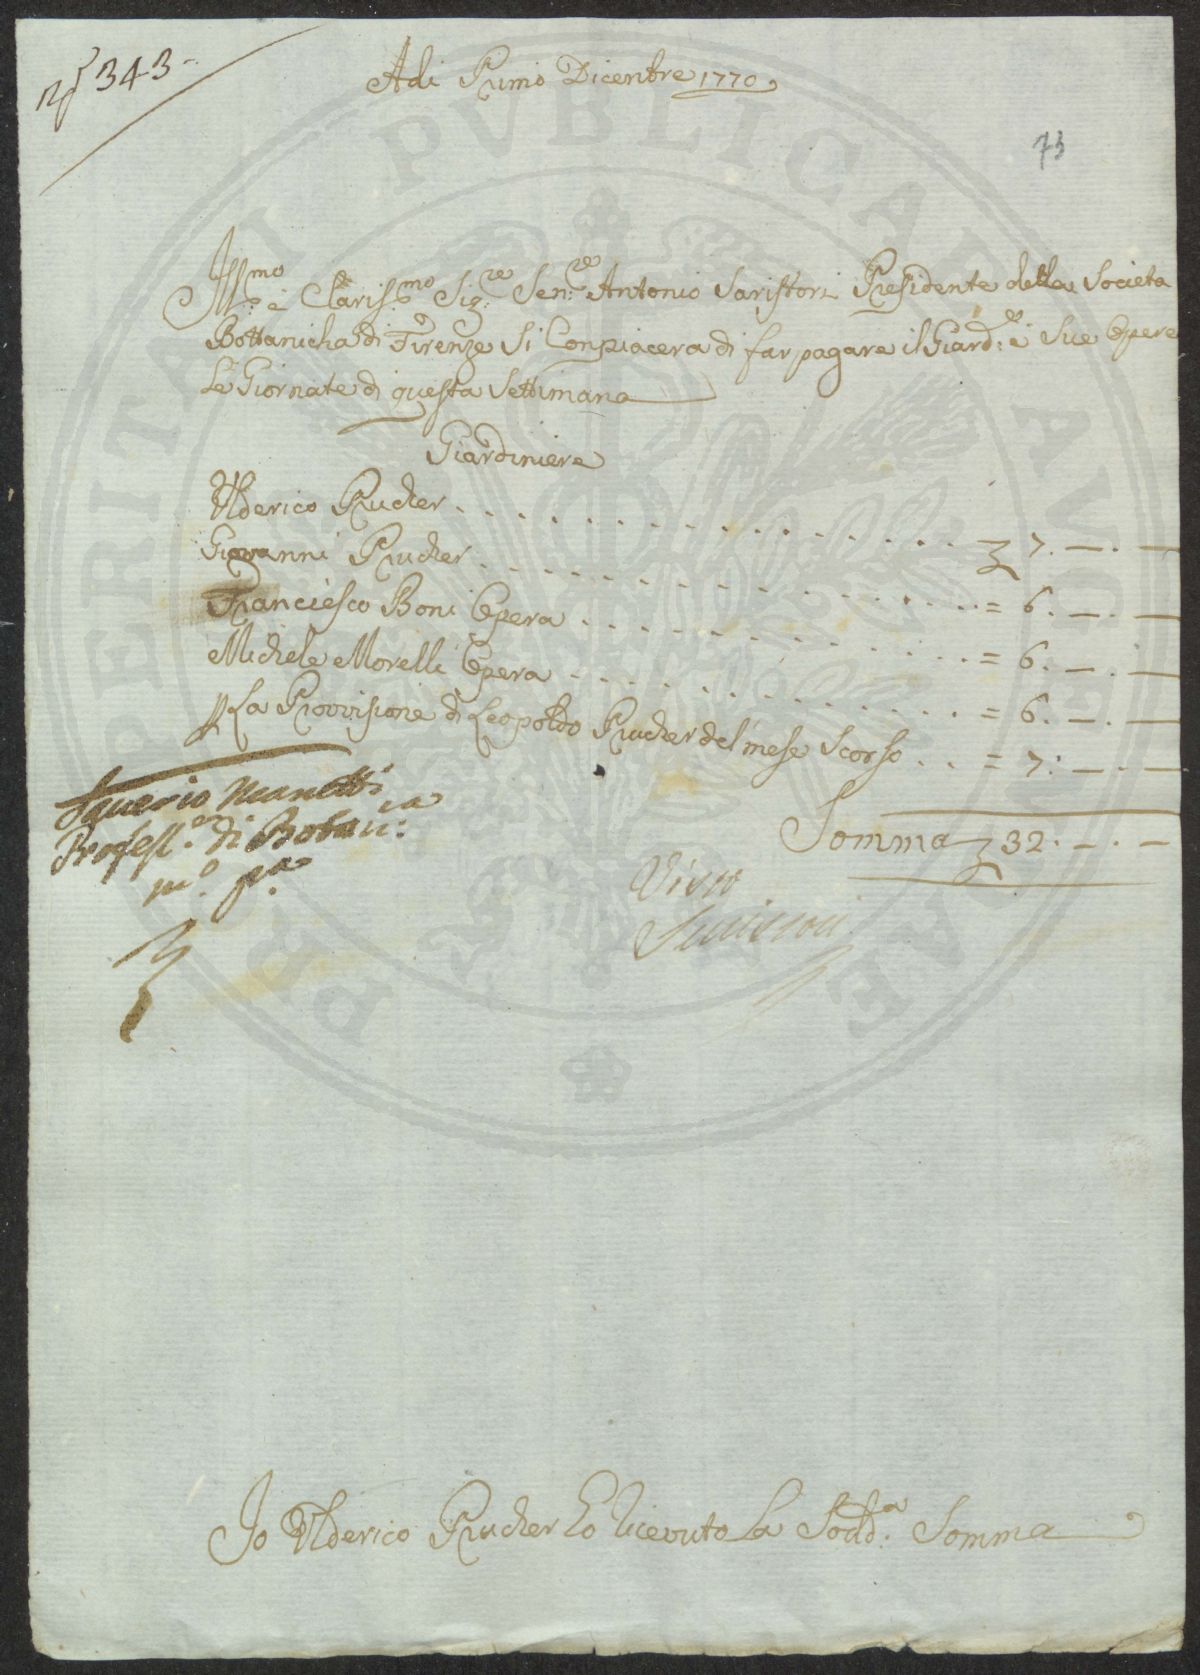 N.º 343.
Adi Primo Dicenbre 1770
73
Ill.mo è Claris.mo Sig.re Sen.re Antonio Saristori Presidente della Societa
Bottanicha di Firenze Si Conpiacera di far pagare il Giard.e è Sue Opere
Le Giornate di questa Settimana
Giardiniere
Ulderico Prucher . . . . . . . . . . . . . . . . £ 7. —. —
Giovanni Prucher . . . . . . . . . . . . . . . . = 6. —. —
Franciesco Boni Opera . . . . . . . . . . . . . = 6. —. —
Michele Morelli Opera . . . . . . . . . . . . . = 6. —. —
p La Provvisione di Leopoldo Prucher del mese Scorso . . = 7. —. —
Somma £ 32. —. —
Saverio Manetti
Profess.re di Botan.ca
m.o p.a
Visto
Serristori
Io Ulderico Prucher ho ricevuto La Sodd.a Somma
PROSPERITATI PVBLICAE AVGENDAE